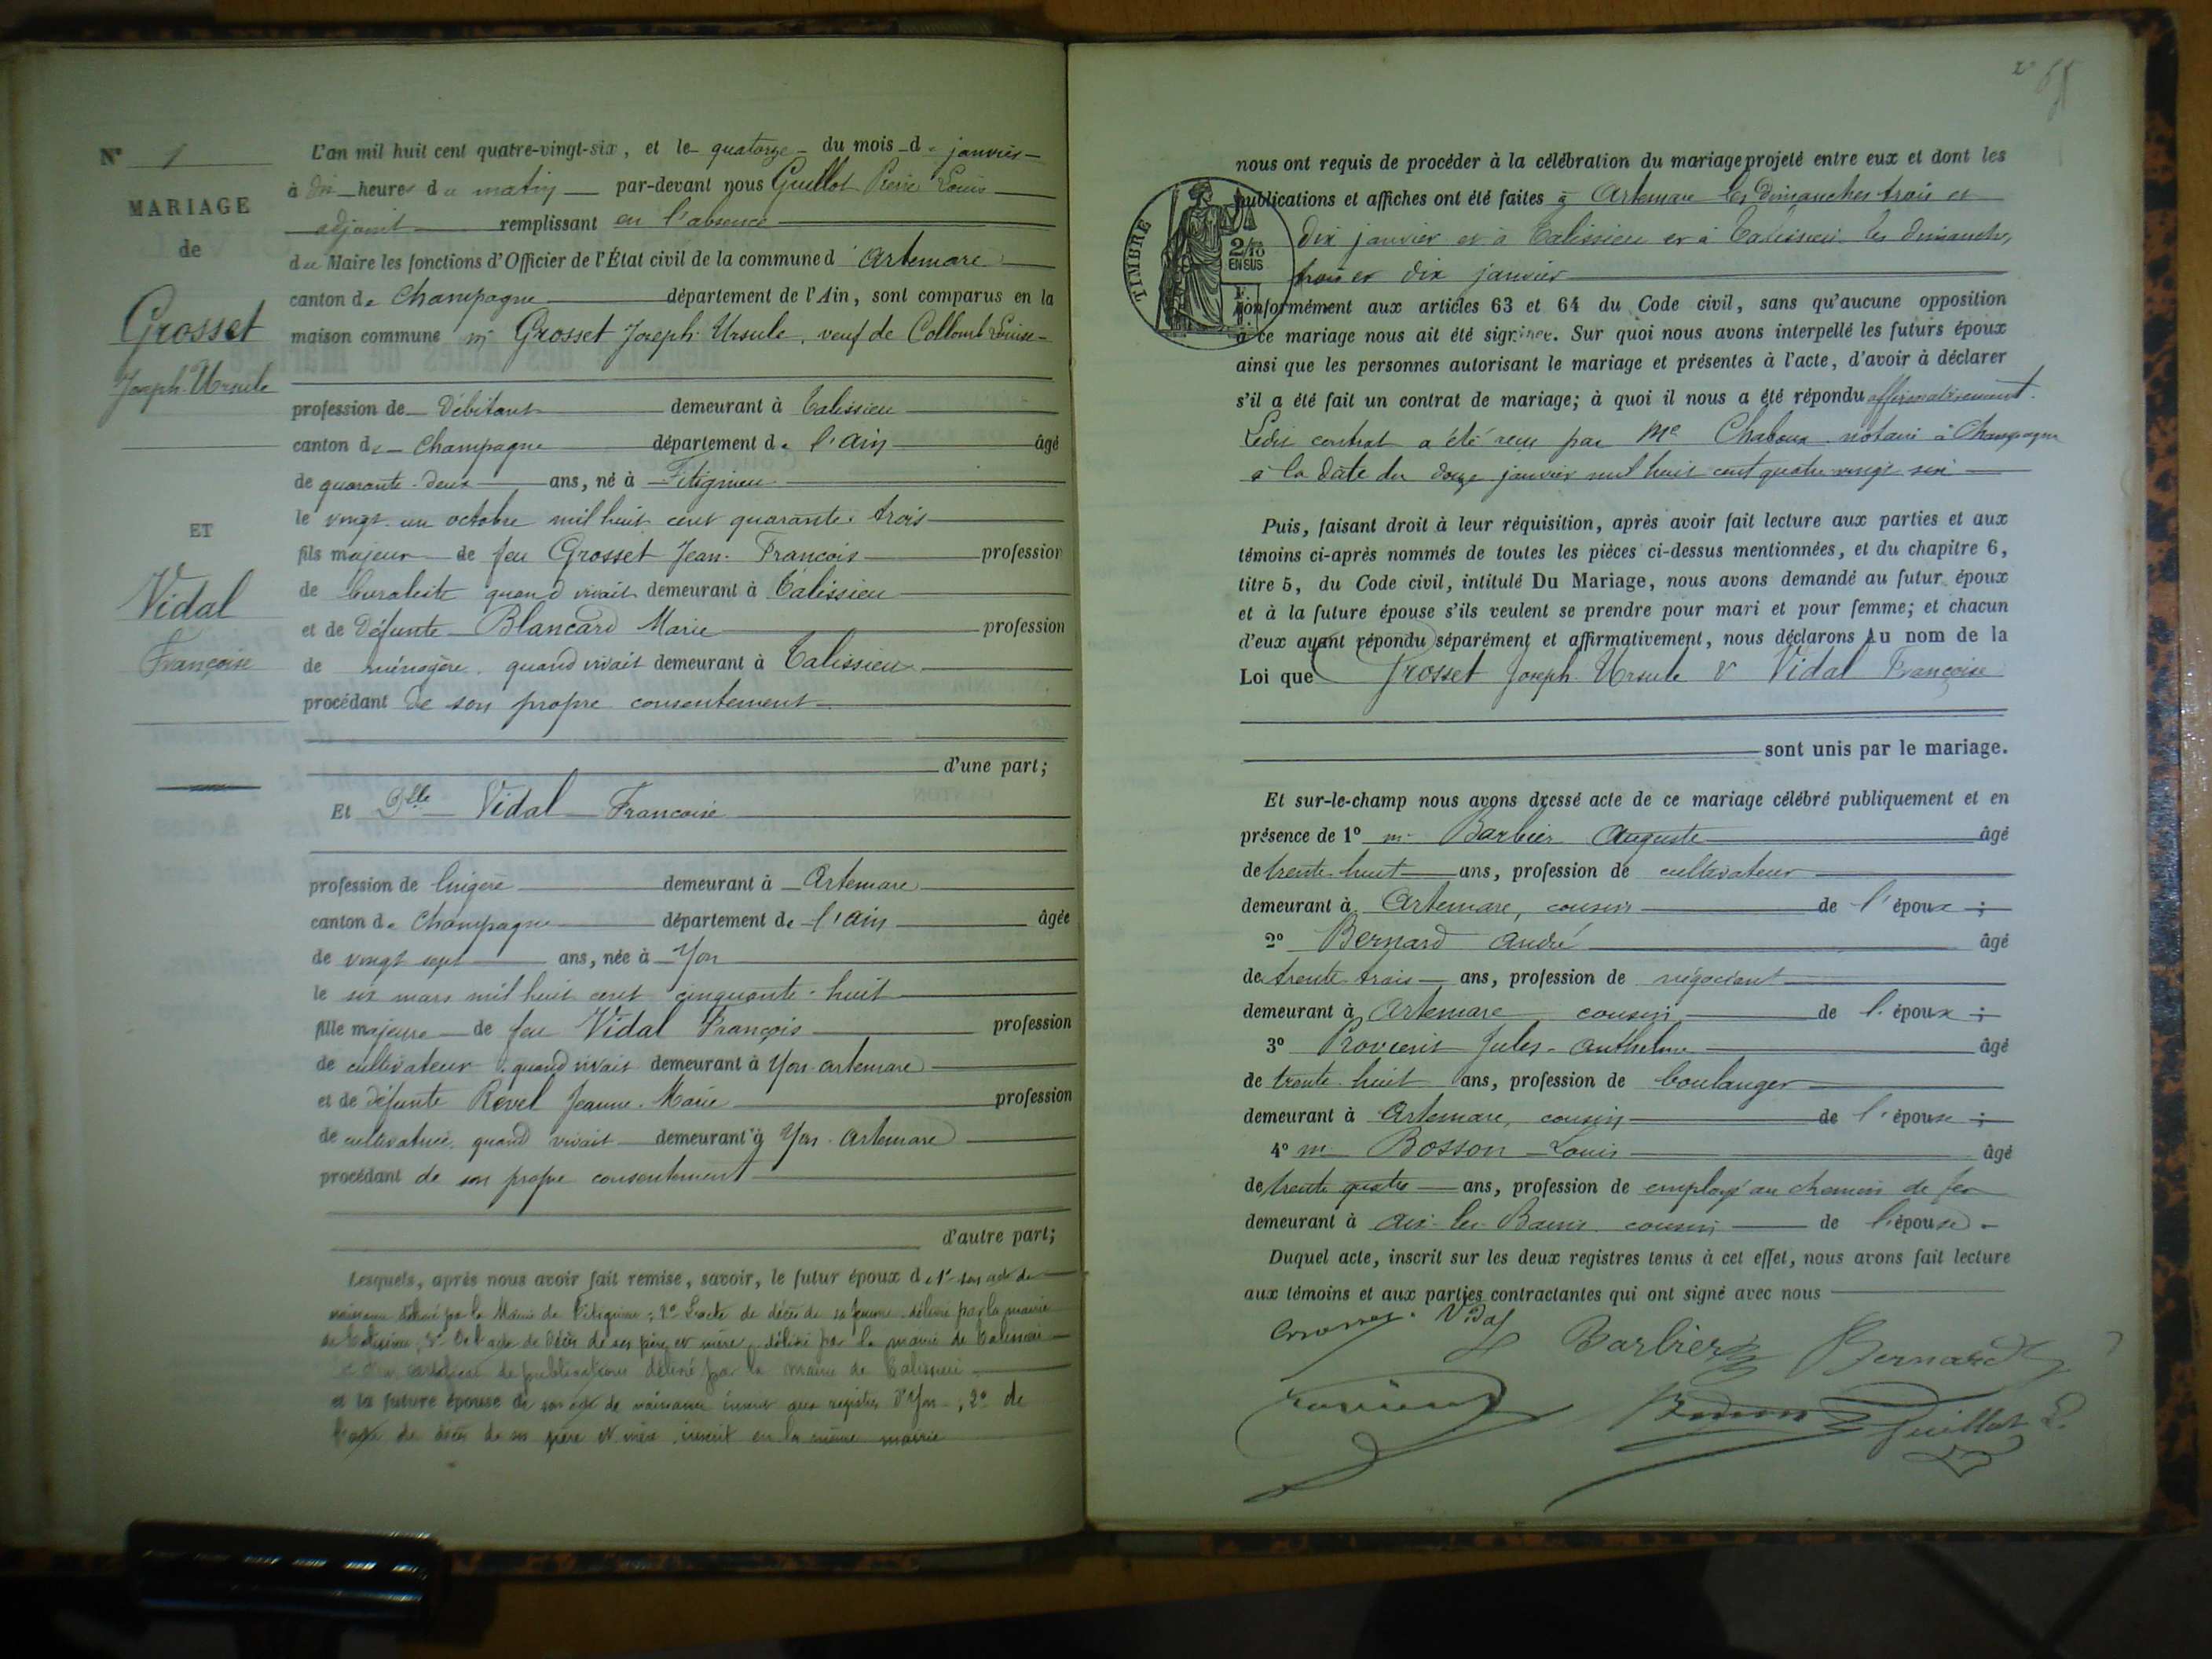 N° 1
MARIAGE
de
Grosset
Joseph Ursule
ET
Vidal
Françoise
L'an mil huit cent quatre-vingt-six, et le quatorze du mois d janvier
à dix heures du matin par-devant nous Guillot Pierre Louis
adjoint remplissant en l'absence
du Maire les fonctions d'Officier de l'État civil de la commune d'Artemare
canton de Champagne département de l'Ain, sont comparus en la
maison commune m. Grosset Joseph Ursule, veuf de Collomb Louise
profession de Débitant demeurant à Talissieu
canton de Champagne département de l'Ain âgé
de quarante-deux ans, né à Fitignieu
le vingt un octobre mil huit cent quarante-trois
fils majeur de feu Grosset Jean-François profession
de buraliste quand vivait demeurant à Talissieu
et de Défunte Blancard Marie profession
de ménagère quand vivait demeurant à Talissieu
procédant de son propre consentement
d'une part;
Et Dlle Vidal Françoise
profession de lingère demeurant à Artemare
canton de Champagne département de l'Ain âgée
de vingt sept ans, née à Yon
le six mars mil huit cent cinquante-huit
fille majeure de feu Vidal François profession
de cultivateur quand vivait demeurant à Yon-Artemare
et de défunte Revel Jeanne-Marie profession
de cultivatrice quand vivait demeurant à Yon-Artemare
procédant de son propre consentement
d'autre part;
Lesquels, après nous avoir fait remise, savoir, le futur époux de 1° son acte de
naissance délivré par la Mairie de Fitignieu; 2° L'acte de décès de sa femme délivré par la mairie
de Talissieu, 3° De l'acte de décès de ses père et mère délivré par la mairie de Talissieu
certificat de publications délivré par la mairie de Talissieu
et la future épouse de son acte de naissance inscrit aux registres d'Yon, 2° de
l'acte de décès de ses père et mère inscrit en la même mairie
65
nous ont requis de procéder à la célébration du mariage projeté entre eux et dont les
publications et affiches ont été faites à Artemare les Dimanches trois et
dix janvier et à Talissieu et à Talissieu les dimanches
trois et dix janvier
TIMBRE
2/10
EN SUS
conformément aux articles 63 et 64 du Code civil, sans qu'aucune opposition
à ce mariage nous ait été signifiée. Sur quoi nous avons interpellé les futurs époux
ainsi que les personnes autorisant le mariage et présentes à l'acte, d'avoir à déclarer
s'il a été fait un contrat de mariage; à quoi il nous a été répondu affirmativement.
Ledit contrat a été reçu par Me Chaboux notaire à Champagne
à la date du douze janvier mil huit cent quatre vingt six
Puis, faisant droit à leur réquisition, après avoir fait lecture aux parties et aux
témoins ci-après nommés de toutes les pièces ci-dessus mentionnées, et du chapitre 6,
titre 5, du Code civil, intitulé Du Mariage, nous avons demandé au futur époux
et à la future épouse s'ils veulent se prendre pour mari et pour femme; et chacun
d'eux ayant répondu séparément et affirmativement, nous déclarons Au nom de la
Loi que Grosset Joseph Ursule & Vidal Françoise
sont unis par le mariage.
Et sur-le-champ nous avons dressé acte de ce mariage célébré publiquement et en
présence de 1° m. Barbier Auguste âgé
de trente-huit ans, profession de cultivateur
demeurant à Artemare, cousin de l'époux;
2° Bernard André âgé
de trente-trois ans, profession de négociant
demeurant à Artemare cousin de l'époux;
3° Provient Jules-Anthelme âgé
de trente-huit ans, profession de boulanger
demeurant à Artemare, cousin de l'épouse;
4° m. Bosson Louis âgé
de trente quatre ans, profession de employé au chemin de fer
demeurant à Aix-les-Bains cousin de l'épouse
Duquel acte, inscrit sur les deux registres tenus à cet effet, nous avons fait lecture
aux témoins et aux parties contractantes qui ont signé avec nous
Grosset Vidal Barbier Bernard
Bosson Guillot